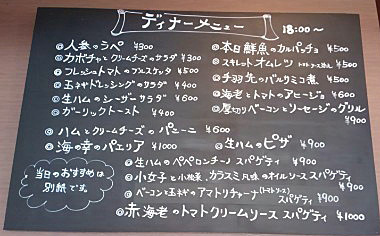 ディナーメニュー 18:00〜
◎人参のラペ ¥300
◎カボチャとクリームチーズのサラダ ¥300
◎フレッシュトマトのブルスケッタ ¥500
◎玉ネギドレッシングのサラダ ¥400
◎生ハムのシーザーサラダ ¥600
◎ガーリックトースト ¥400
◎ハムとクリームチーズのパニーニ ¥600
◎海の幸のパエリア ¥1000
当日のおすすめは
別紙です。
◎本日鮮魚のカルパッチョ ¥500
◎スキレットオムレツ トマトソース ¥500
◎手羽先のバルサミコ煮 ¥500
◎海老とトマトのアヒージョ ¥600
◎厚切りベーコンとソーセージのグリル
¥900
◎生ハムのピザ ¥900
◎生ハムのペペロンチーノ スパゲティ ¥900
◎小女子と小松菜、カラスミ風味のオイルソース スパゲティ
¥900
◎ベーコンと玉ネギのアマトリチャーナ(トマトソース)
スパゲティ ¥900
◎赤海老のトマトクリームソース スパゲティ ¥1000